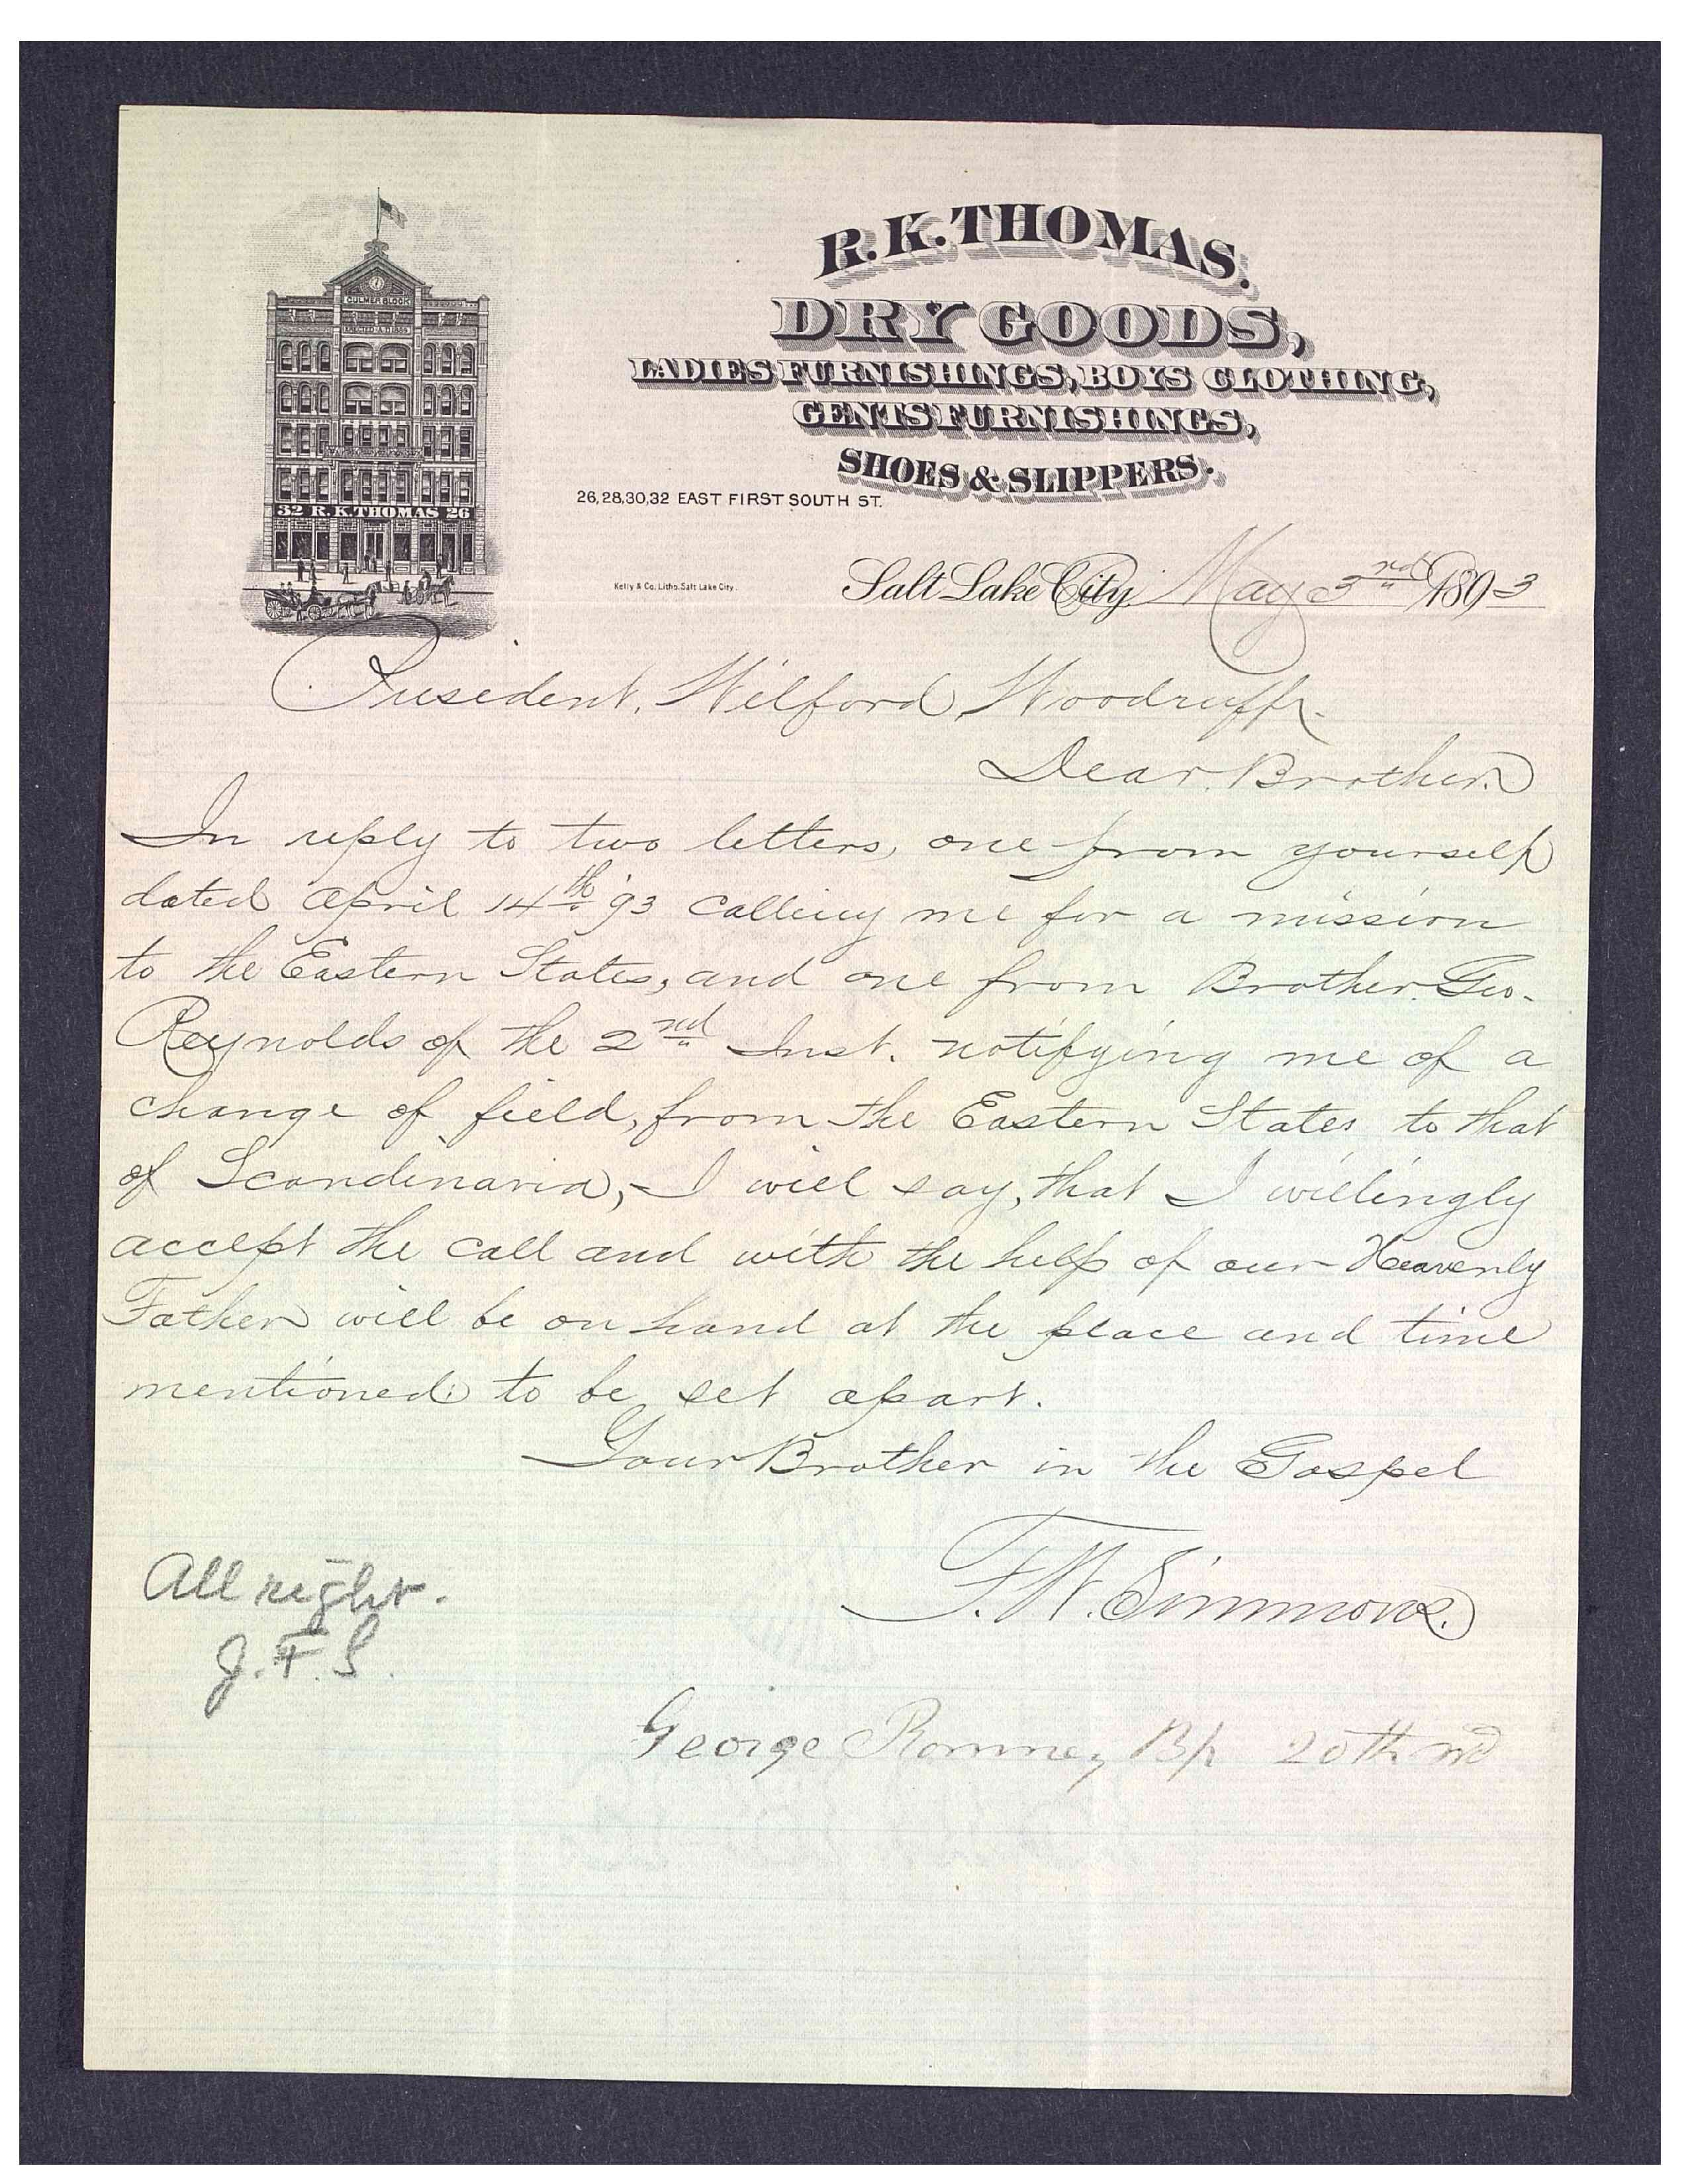 R. K. THOMAS.
DRY GOODS,
LADIES FURNISHINGS, BOYS CLOTHING,
GENTS FURNISHINGS,
SHOES & SLIPPERS.
26,28,30,32 EAST FIRST SOUTH ST.
CULMER BLOCK
ERECTED A.D. 1889
32 R. K. THOMAS 26
Kelly & Co. Liths. Salt Lake City.
Salt Lake City, May 3nd 1893
President, Wilford, Woodruff.
Dear, Brother.
In reply to two letters, one from yourself
dated April 14th '93 calling me for a mission
to the Eastern States, and one from Brother. Geo.
Reynolds of the 2nd Inst. notifying me of a
change of field, from the Eastern States to that
of Scandinavia, - I will say, that I willingly
accept the call and with the help of our Heavenly
Father will be on hand at the place and time
mentioned to be set apart.
Your Brother in the Gospel
F. W. Simmons.
All right.
J. F. S.
George Romney Bp 20th wd